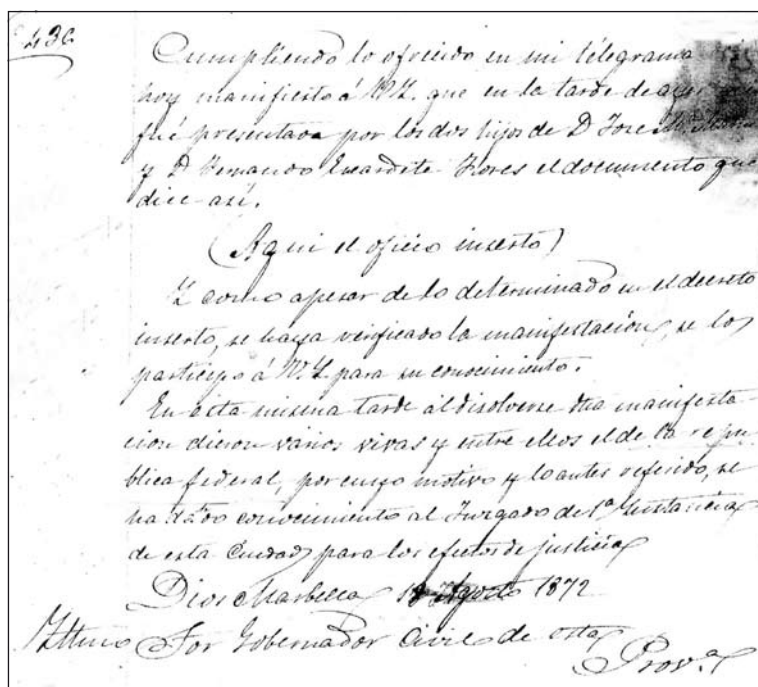 436
Cumpliendo lo ofrecido en mi telegrama
hoy manifiesto á V.I. que en la tarde de ayer
fué presentada por los dos hijos de D José
y D Fernando Flores el documento que
dice así.
(Aqui el oficio inserto)
Y como apesar de lo determinado en el decreto
inserto, se haya verificado la manifestación, se lo
participo á V.I. para su conocimiento.
En esta misma tarde al disolverse dha manifesta-
ción dieron varios vivas y entre ellos el de la repu-
blica federal, por cuyo motivo y lo antes referido, se
ha dado conocimiento al Juzgado de 1ª Instancia
de esta Ciudad, para los efectos de justicia
Dios Marbella 18 Agosto 1872
Iltmo Sor Gobernador Civil de esta
Provª